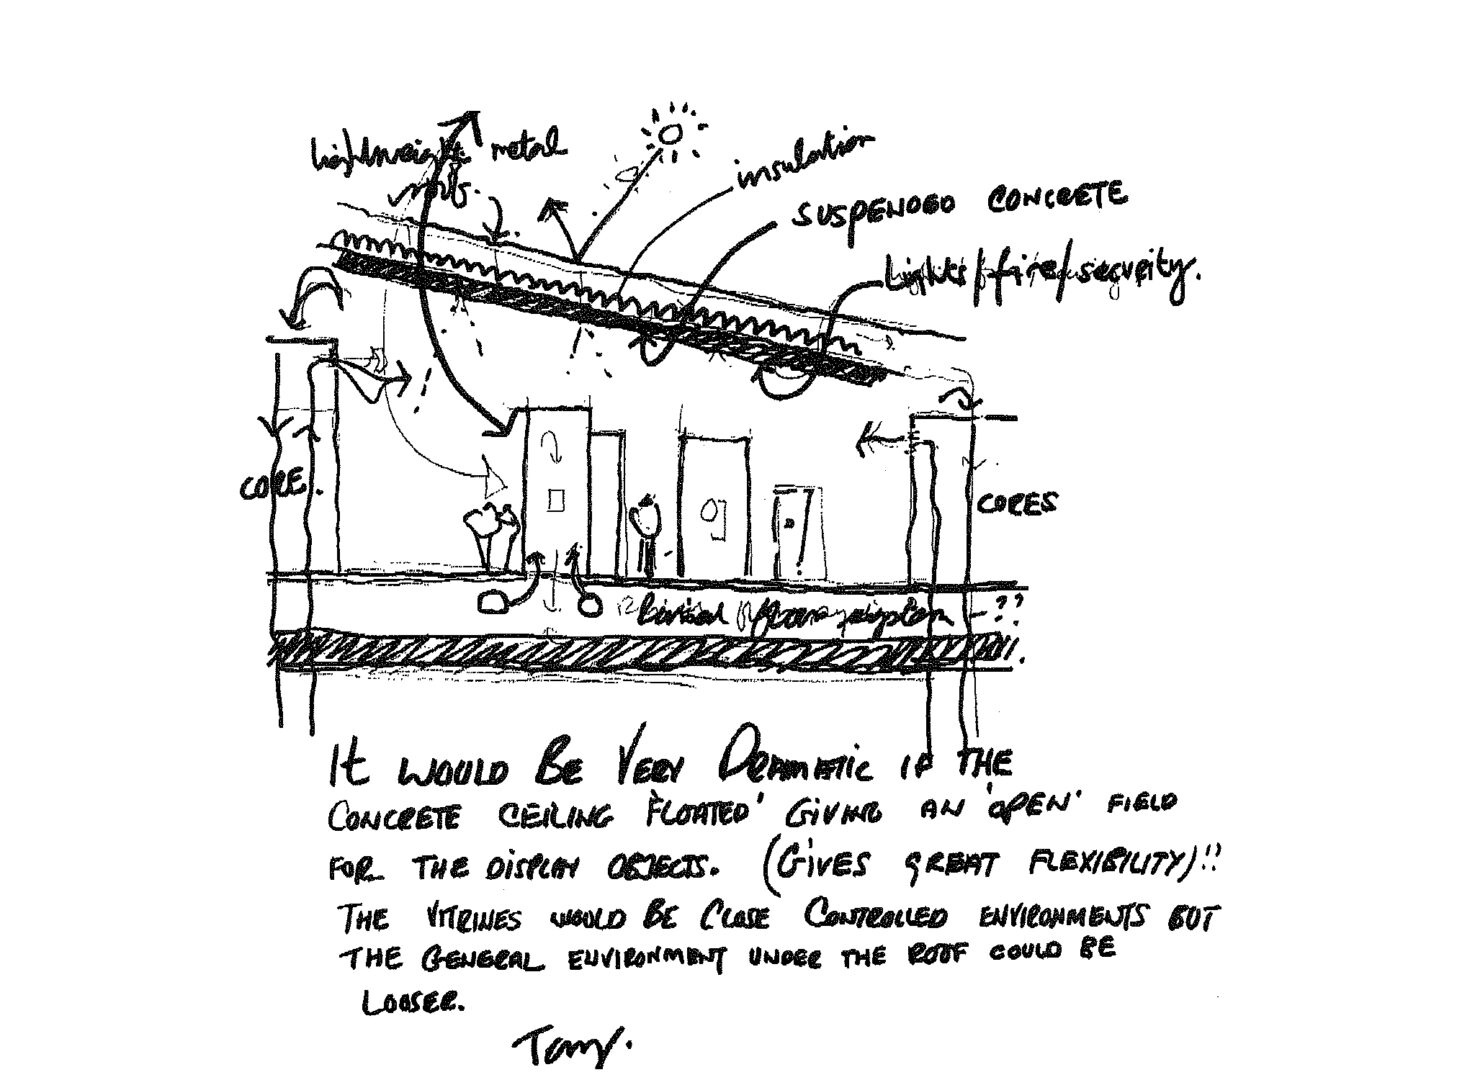 lightweight metal
roof.
insulation
SUSPENDED CONCRETE
lights/fire/security.
CORE.
CORES
floor system - ??
It WOULD BE VERY DRAMATIC IF THE
CONCRETE CEILING 'FLOATED' GIVING AN 'OPEN' FIELD
FOR THE DISPLAY OBJECTS. (GIVES GREAT FLEXIBILITY)!!
THE VITRINES WOULD BE CLOSE CONTROLLED ENVIRONMENTS BUT
THE GENERAL ENVIRONMENT UNDER THE ROOF COULD BE
LOOSER.
Tony.